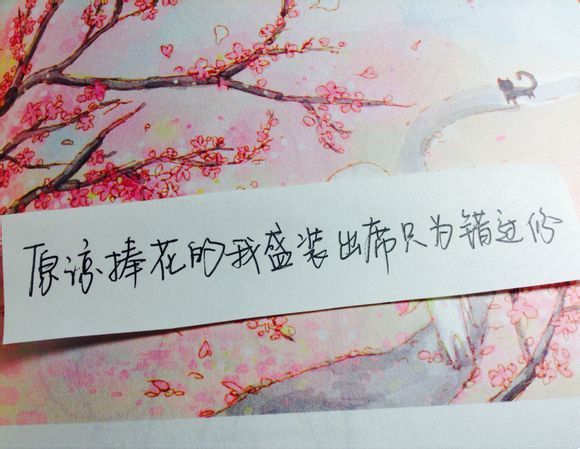 原谅捧花的我盛装出席只为错过你